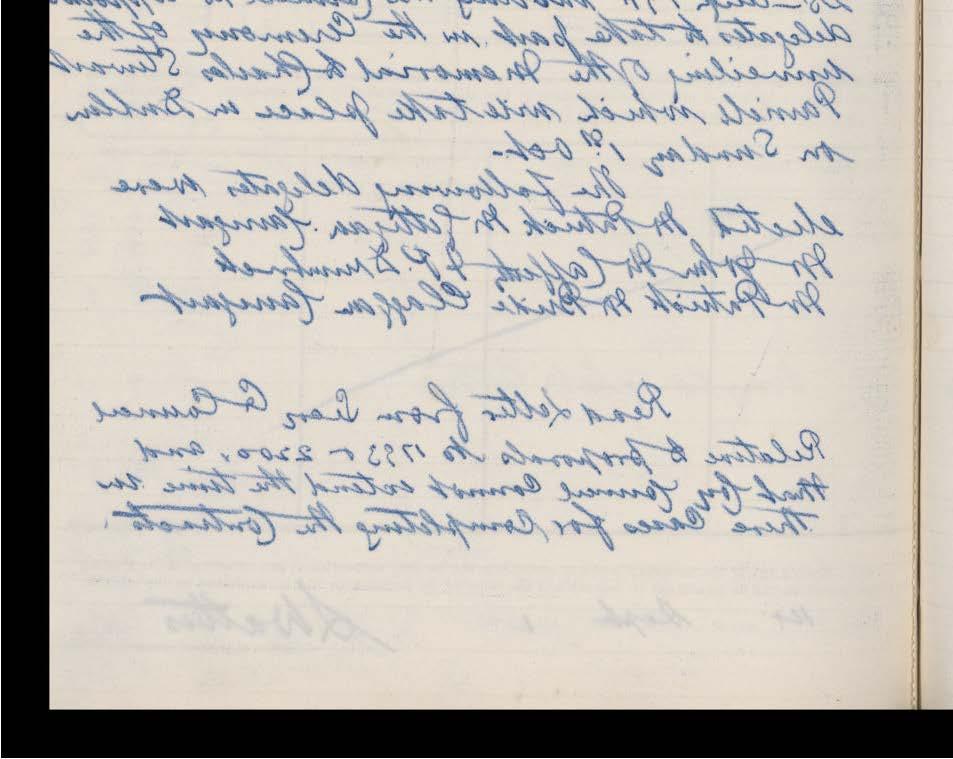 delegates to take part in the Ceremony of the
unveiling of the Memorial to Charles Stewart
Parnell which will take place in Dublin
on Sunday 1st Oct.
The following delegates were
elected Mr Patrick McGettigan
Mr John McCafferty
Mr Patrick McBride Claggan
Read Letter from Secy Co Council
Relative to proposals No 1753 - 2200, and
that Coy Council Cannot extend the time in
these Cases for Completing the Contracts.